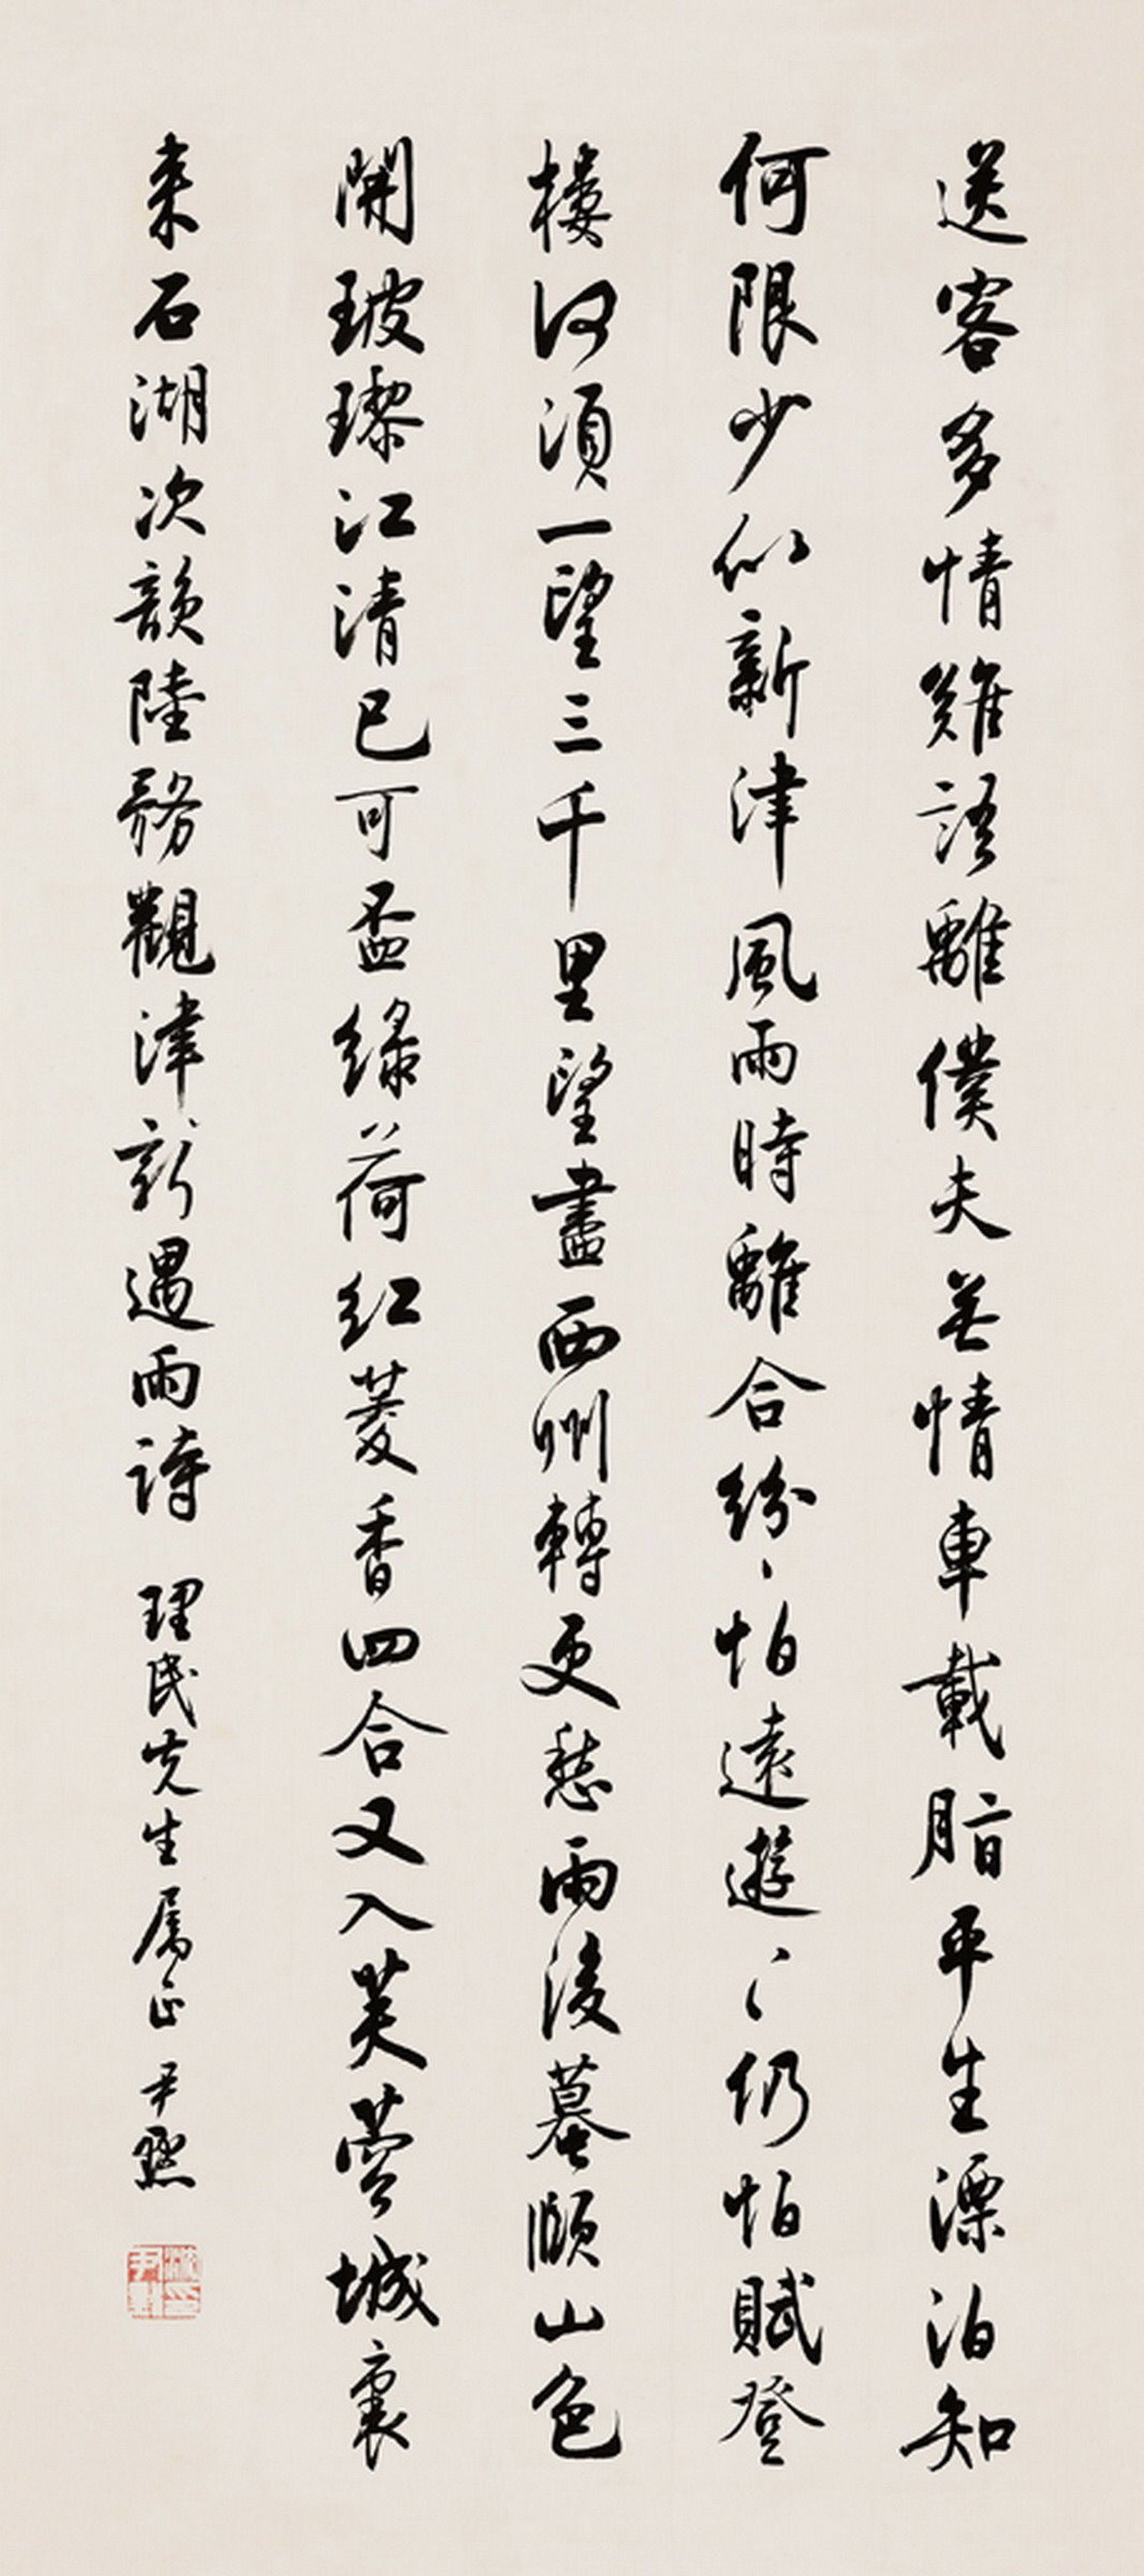 送客多情難語離僕夫無情車載脂平生漂泊知
何限少似新津風雨時離合紛、怕遠遊〻仍怕賦登
樓何須一望三千里望盡西州轉更愁雨後蟇頤山色
開玻瓈江清已可盃綠荷紅菱香四合又入芙蓉城裏
來石湖次韻陸務觀津新遇雨詩 理民先生屬正 尹默